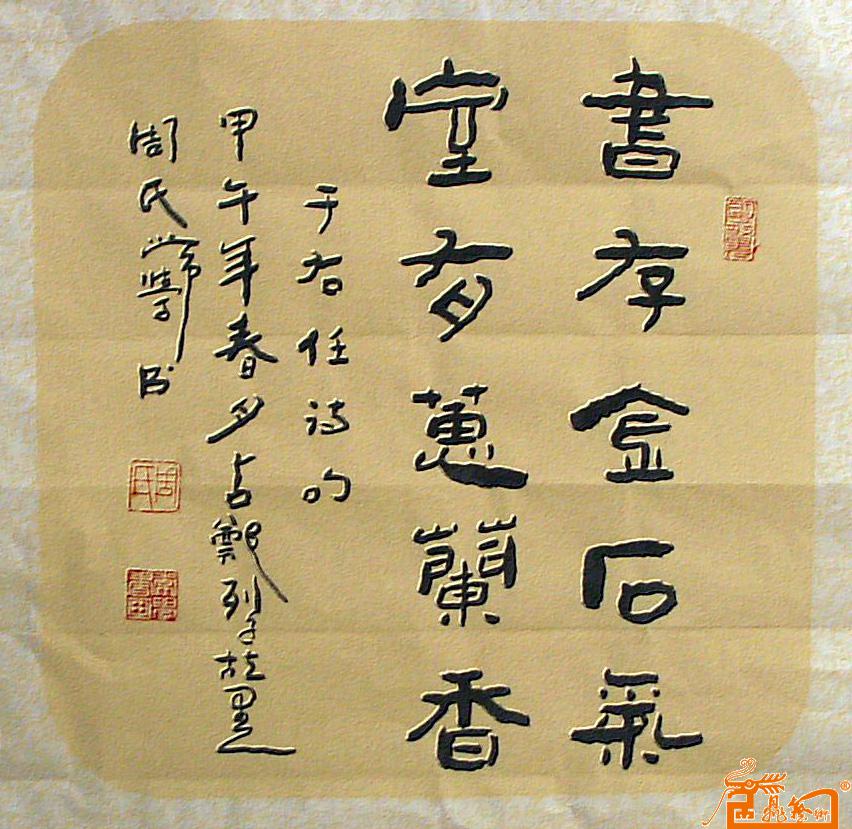 書存金石氣
室有蕙蘭香
于右任詩句
甲午年春夕鄭列子故里
周氏常學書
周氏